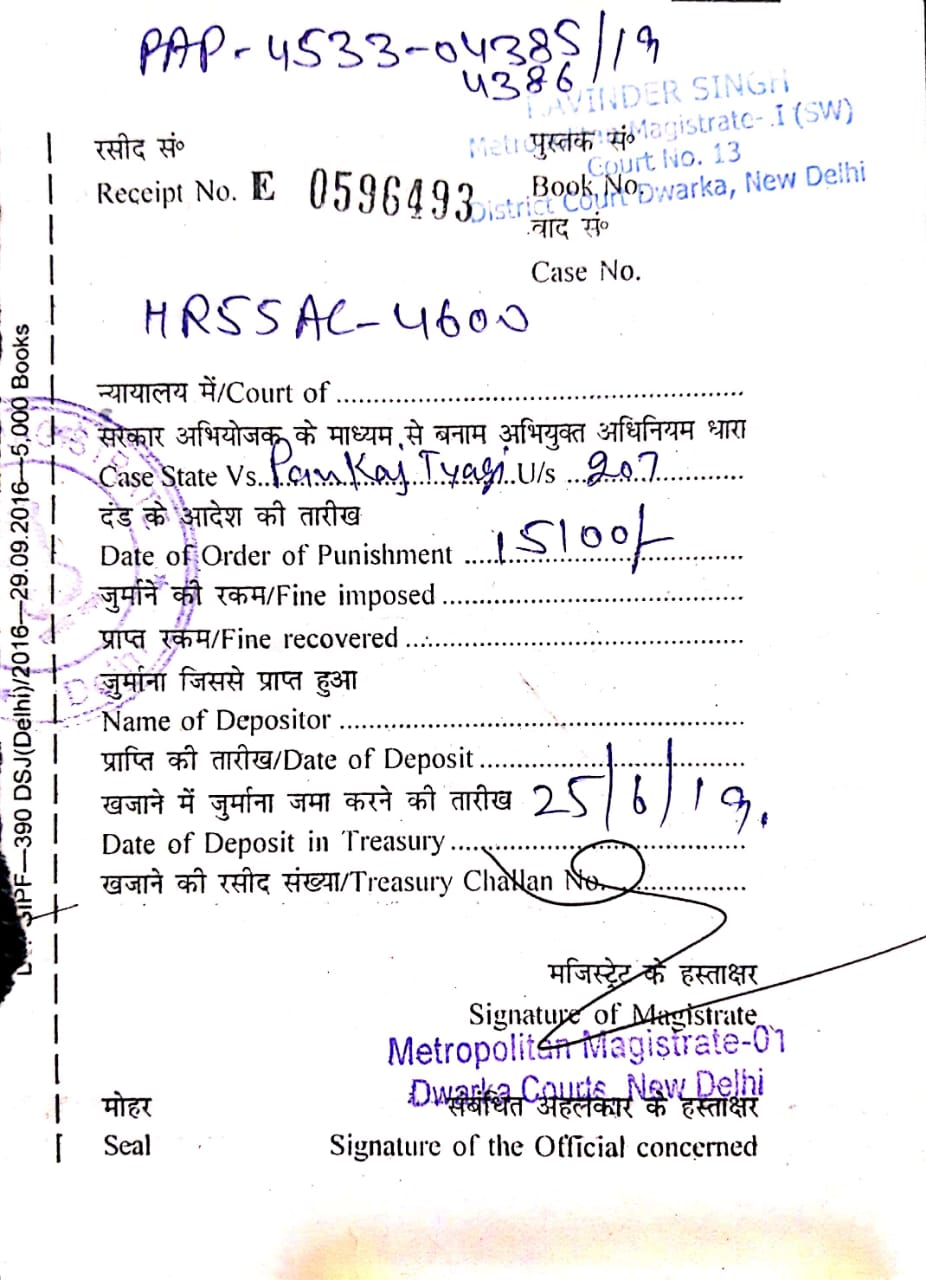 PAP-4533-04385/19
4386
RAVINDER SINGH
Metropolitan Magistrate-.I (SW)
Court No. 13
District Court Dwarka, New Delhi
रसीद सं०
पुस्तक सं०
Receipt No. E 0596493
Book No.
वाद सं०
Case No.
HR55AC-4600
न्यायालय में/Court of
सरकार अभियोजक के माध्यम से बनाम अभियुक्त अधिनियम धारा
Case State Vs. Pankaj Tyagi U/s 207
दंड के आदेश की तारीख
Date of Order of Punishment 15100/-
जुर्माने की रकम/Fine imposed
प्राप्त रकम/Fine recovered
जुर्माना जिससे प्राप्त हुआ
Name of Depositor
प्राप्ति की तारीख/Date of Deposit
खजाने में जुर्माना जमा करने की तारीख 25/6/19.
Date of Deposit in Treasury
खजाने की रसीद संख्या/Treasury Challan No.
मजिस्ट्रेट के हस्ताक्षर
Signature of Magistrate
Metropolitan Magistrate-01
Dwarka Courts, New Delhi
मोहर
संबंधित अहलकार के हस्ताक्षर
Seal
Signature of the Official concerned
SIPF—390 DSJ(Delhi)/2016—29.09.2016—5,000 Books